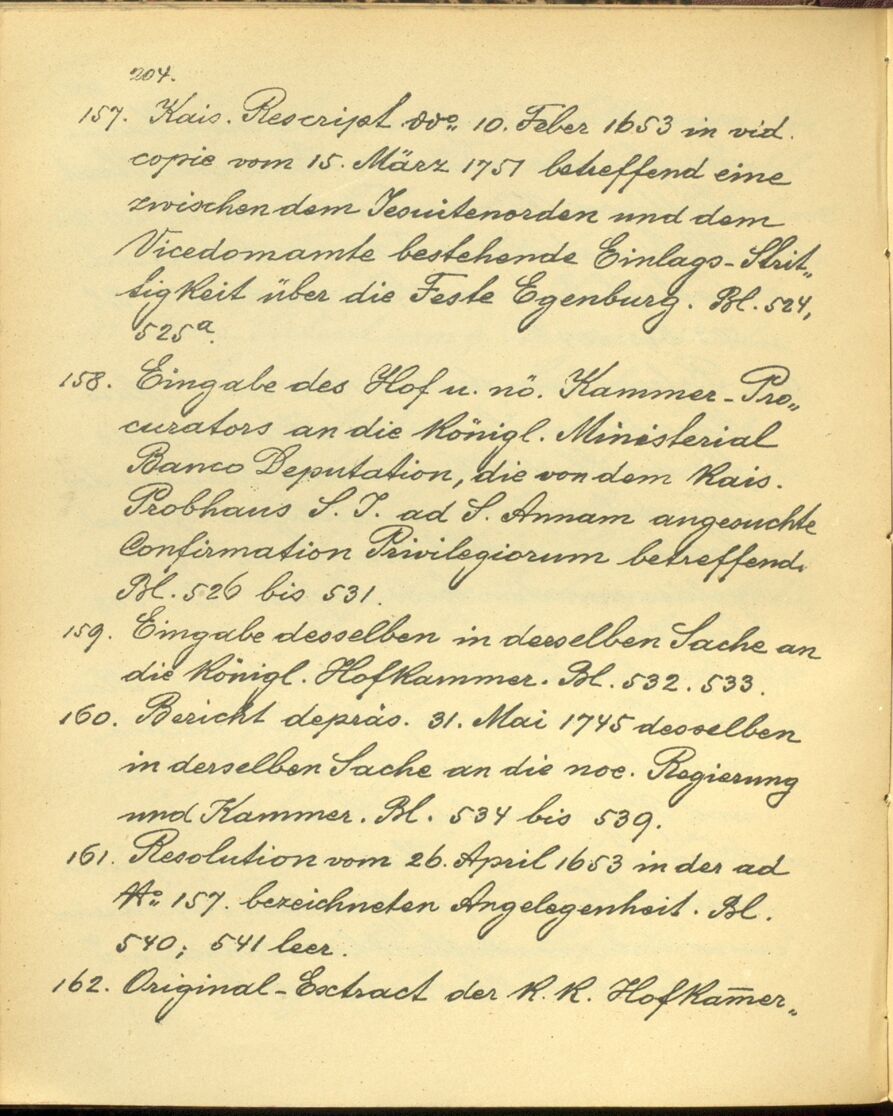 204.
157. Kais. Rescript ddo. 10. Feber 1653 in vid.
copie vom 15. März 1751 betreffend eine
zwischen dem Jesuitenorden und dem
Vicedomamte bestehende Einlags-Strit„
tigkeit über die Feste Egenburg. Bl. 524,
525a.
158. Eingabe des Hof u. nö. Kammer-Pro„
curators an die königl. Ministerial
Banco Deputation, die von dem Kais.
Probhaus S. J. ad S. Annam angesuchte
Confirmation Privilegiorum betreffend.
Bl. 526 bis 531.
159. Eingabe desselben in derselben Sache an
die königl. Hofkammer. Bl. 532. 533.
160. Bericht depräs. 31. Mai 1745 desselben
in derselben Sache an die noe. Regierung
und Kammer. Bl. 534 bis 539.
161. Resolution vom 26. April 1653 in der ad
No. 157. bezeichneten Angelegenheit. Bl.
540; 541 leer.
162. Original-Extract der k. k. Hofkam̅er„